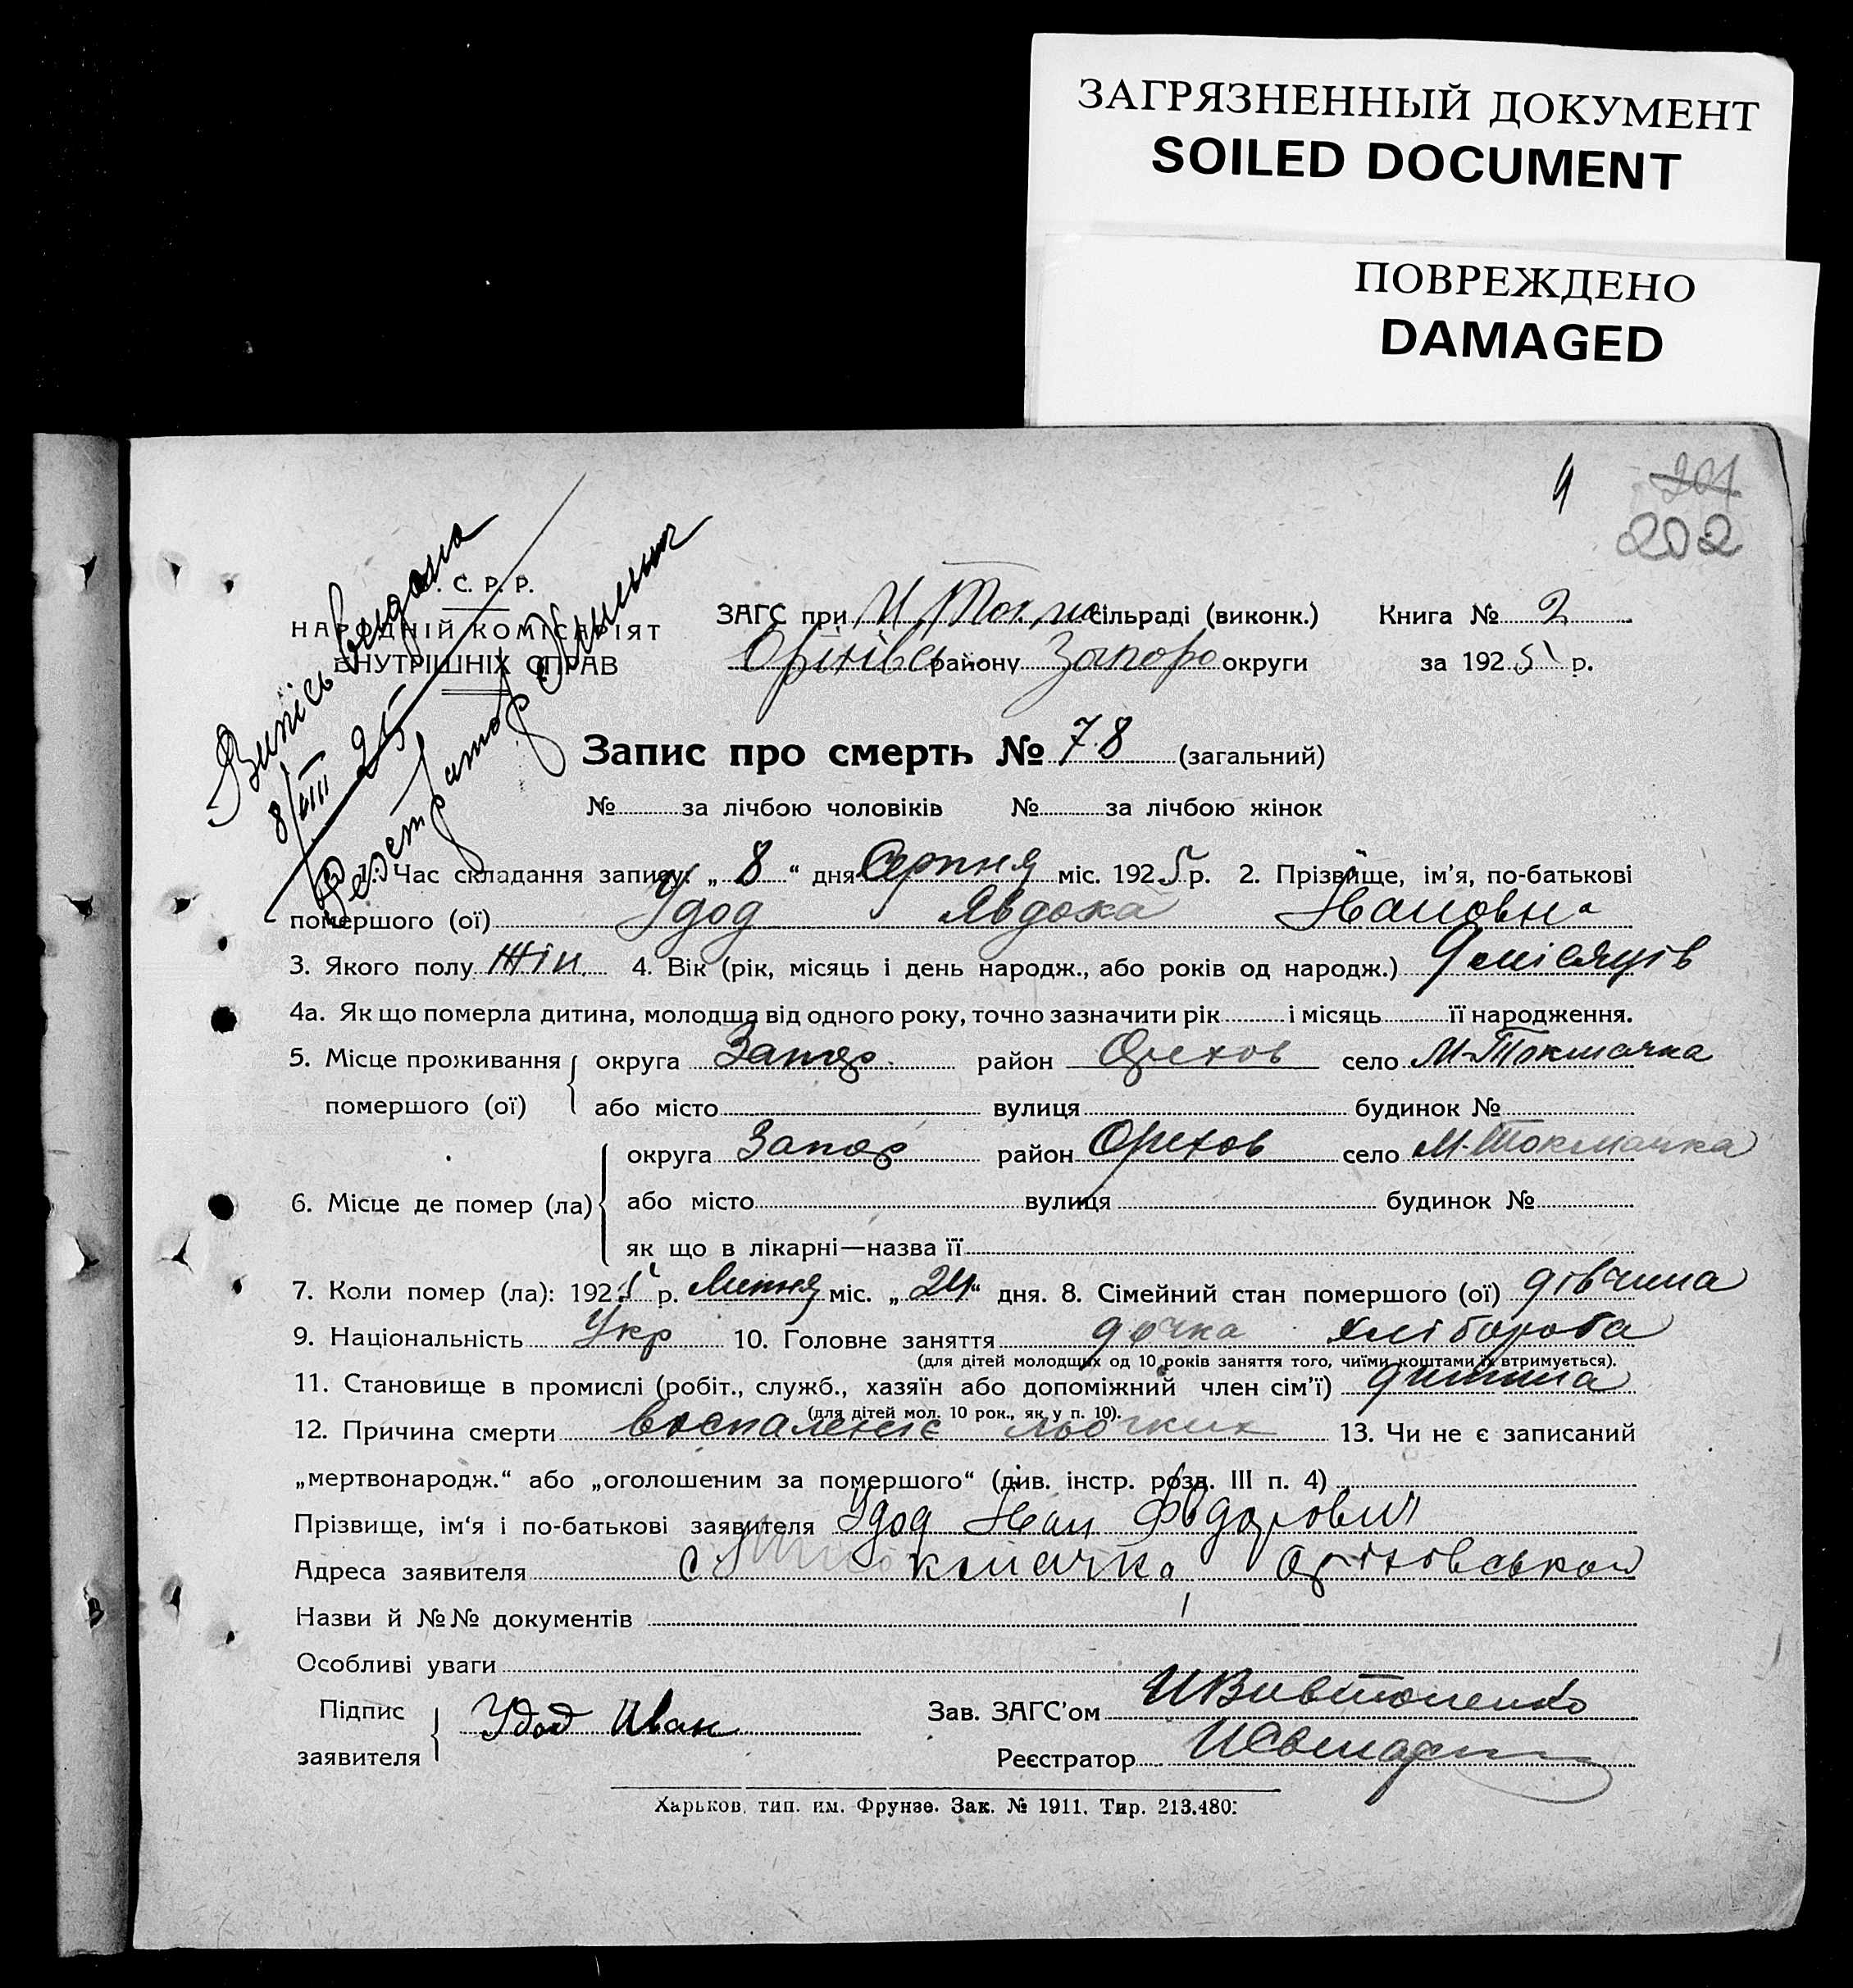 ЗАГРЯЗНЕННЫЙ ДОКУМЕНТ
SOILED DOCUMENT
ПОВРЕЖДЕНО
DAMAGED
201
202
Випісь видана
8/VIII 25
Регестратор
. С. Р. Р.
НАРОДНІЙ КОМІСАРІЯТ
ВНУТРІШНІХ СПРАВ
ЗАГС при М Токма сільраді (виконк.) Книга № 2
Оріхівсь району Запоро округи за 1925 р.
Запис про смерть № 78 (загальний)
№ за лічбою чоловіків № за лічбою жінок
1. Час складання запису: „ 8 “ дня Серпня міс. 1925 р. 2. Прізвище, ім'я, по-батькові
помершого (ої) Удод Явдоха Івановна
3. Якого полу жін. 4. Вік (рік, місяць і день народж., або років од народж.) 9 місяців
4а. Як що померла дитина, молодша від одного року, точно зазначити рік і місяць її народження.
5. Місце проживання округа Запор. район Орехов село М-Токмачка
помершого (ої) або місто вулиця будинок №
округа Запор район Орехов село М-Токмачка
6. Місце де помер (ла) або місто вулиця будинок №
як що в лікарні—назва її
7. Коли помер (ла): 1925 р. Липня міс. „ 24 “ дня. 8. Сімейний стан помершого (ої) дівчина
9. Національність Укр 10. Головне заняття дочка хлібороба
(для дітей молодших од 10 років заняття того, чиїми коштами їх втримується).
11. Становище в промислі (робіт., служб., хазяїн або допоміжний член сім'ї) дитина
(для дітей мол. 10 рок., як у п. 10).
12. Причина смерти воспаленіє льогких 13. Чи не є записаний
„мертвонародж.“ або „оголошеним за помершого“ (див. інстр. розд. III п. 4)
Прізвище, ім‘я і по-батькові заявителя Удод Іван Фвдорович
Адреса заявителя с токмачка Оріховськой
Назви й №№ документів
Особливі уваги
Підпис
заявителя Удод Иван
Зав. ЗАГС'ом
Реєстратор
Харьков, тип. им. Фрунзе. Зак. № 1911. Тир. 213.480.